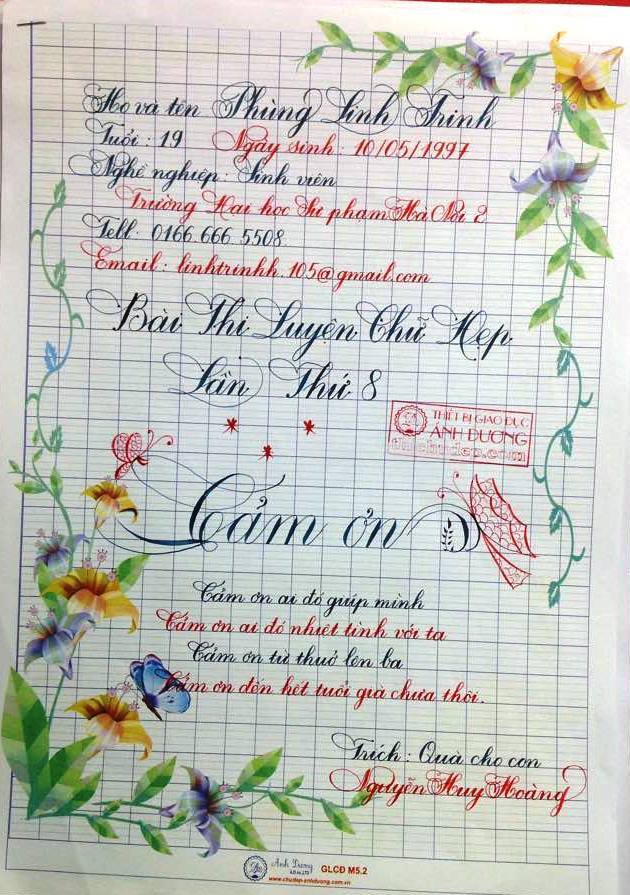 Họ và tên Phùng Linh Trinh
Tuổi : 19 Ngày sinh : 10/05/1997
Nghề nghiệp : Sinh viên
Trường Đại học Sư phạm Hà Nội 2
Tell : 0166 666 5508.
Email : linhtrinhh.105@gmail.com
Bài Thi Luyện Chữ Đẹp
Lần Thứ 8
THIẾT BỊ GIÁO DỤC
ÁNH DƯƠNG
Cảm ơn
Cảm ơn ai đó giúp mình
Cảm ơn ai đó nhiệt tình với ta
Cảm ơn từ thuở lên ba
Cảm ơn đến hết tuổi già chưa thôi.
Trích : Quà cho con
Nguyễn Huy Hoàng
Ánh Dương
GLCĐ M5.2
www.chudep-anhduong.com.vn